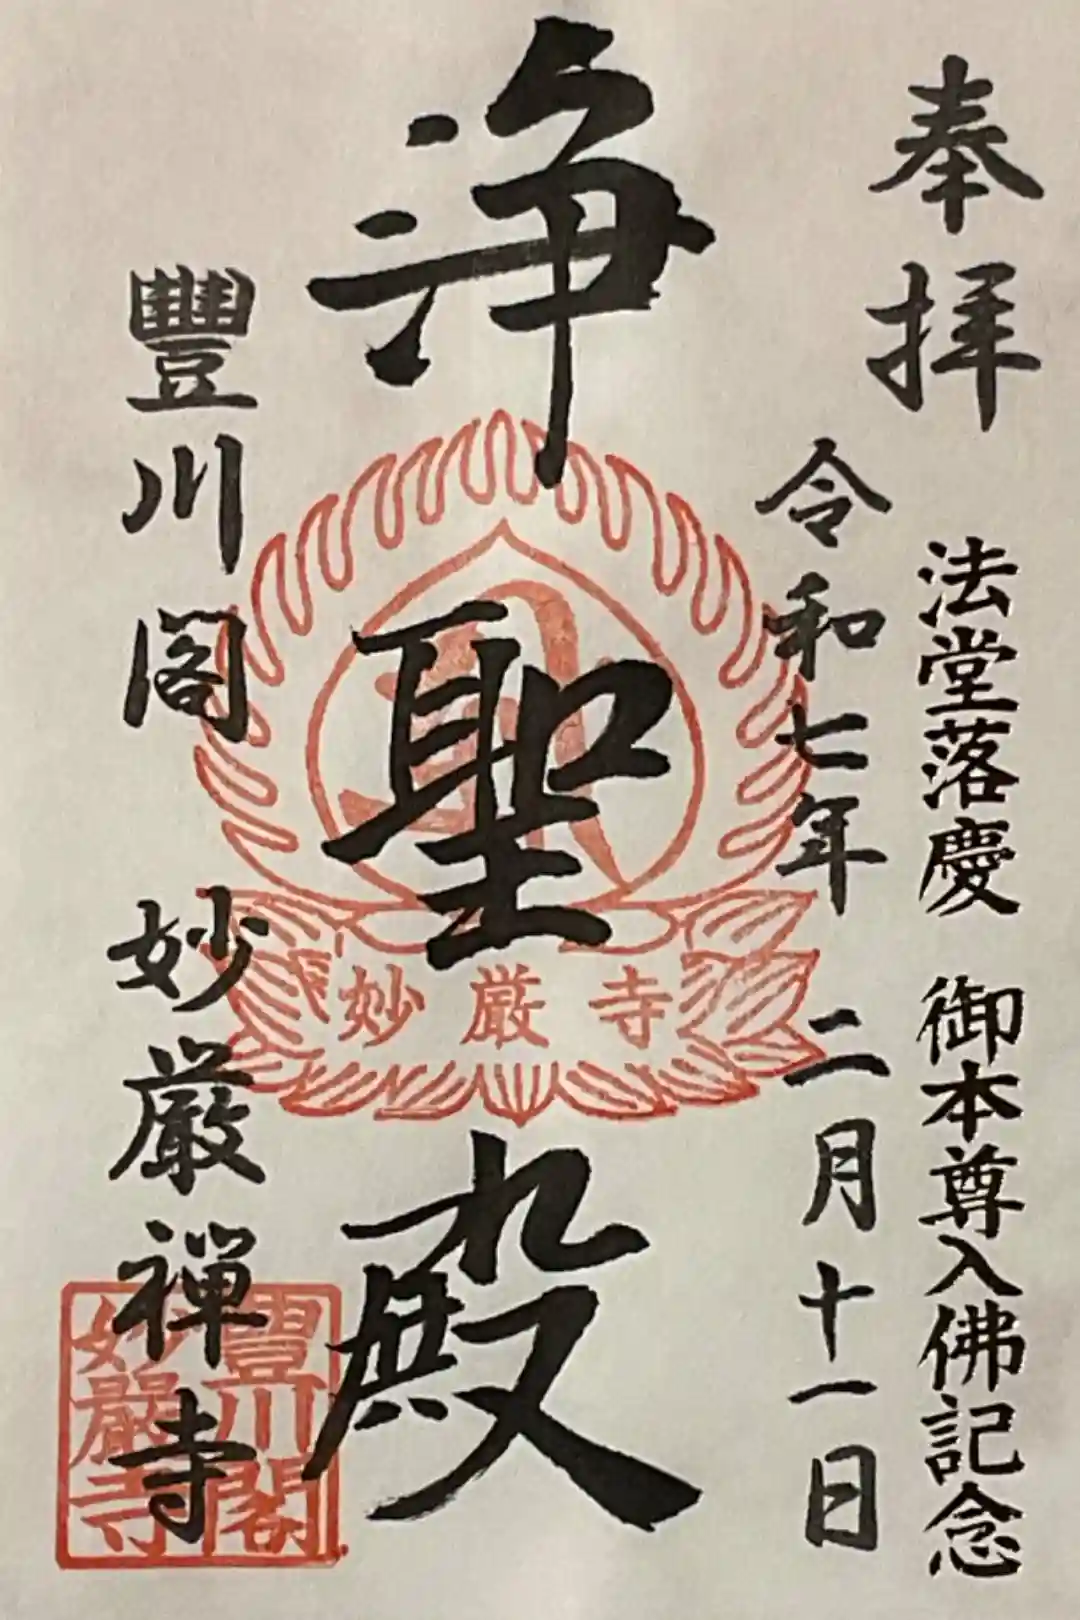 奉拝
法堂落慶 御本尊入佛記念
令和七年 二月十一日
浄聖殿
妙厳寺
豐川閣 妙厳禅寺
豊川閣
妙嚴寺